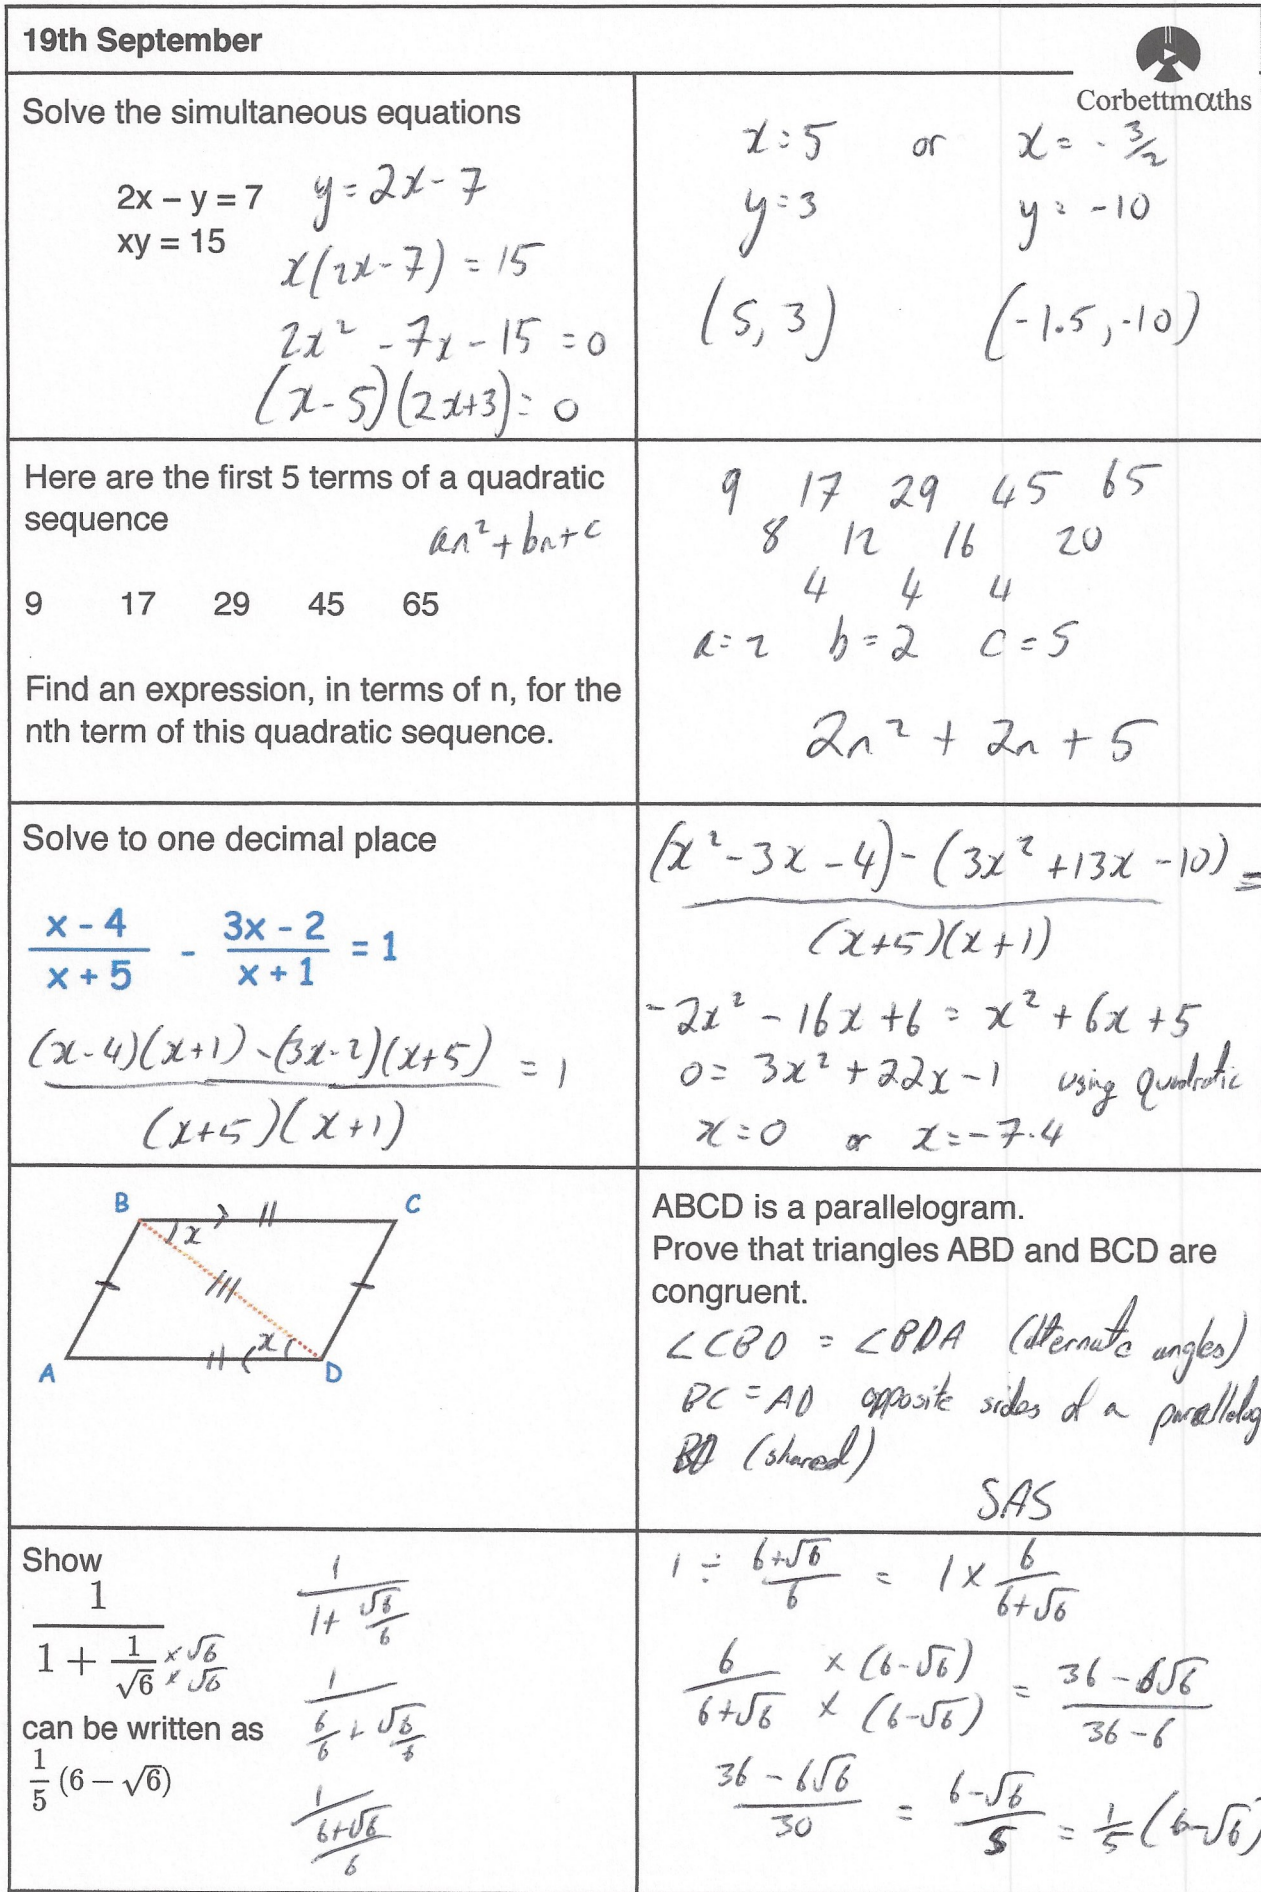 19th September
Corbettmαths
Solve the simultaneous equations
2x – y = 7
xy = 15
y = 2x - 7
x(2x - 7) = 15
2x² - 7x - 15 = 0
(x - 5)(2x + 3) = 0
x = 5 or x = - 3/2
y = 3 y = -10
(5, 3) (-1.5, -10)
Here are the first 5 terms of a quadratic
sequence
an² + bn + c
9 17 29 45 65
Find an expression, in terms of n, for the
nth term of this quadratic sequence.
9 17 29 45 65
8 12 16 20
4 4 4
a = 2 b = 2 c = 5
2n² + 2n + 5
Solve to one decimal place
x - 4 3x - 2
- = 1
x + 5 x + 1
(x - 4)(x + 1) - (3x - 2)(x + 5) = 1
(x + 5)(x + 1)
(x² - 3x - 4) - (3x² + 13x - 10) =
(x + 5)(x + 1)
-2x² - 16x + 6 = x² + 6x + 5
0 = 3x² + 22x - 1 using quadratic
x = 0 or x = -7.4
B C
x
x
A D
ABCD is a parallelogram.
Prove that triangles ABD and BCD are
congruent.
∠CBD = ∠BDA (alternate angles)
BC = AD opposite sides of a parallelog
BD (shared)
SAS
Show
1
1 + 1/√6 × √6
× √6
can be written as
1/5 (6 − √6)
1
1 + √6/6
1
6/6 + √6/6
1
6+√6
6
1 ÷ 6+√6/6 = 1 × 6/6+√6
6 × (6-√6) = 36 - 6√6
6+√6 × (6-√6) 36 - 6
36 - 6√6 = 6-√6 = 1/5 (6-√6)
30 5